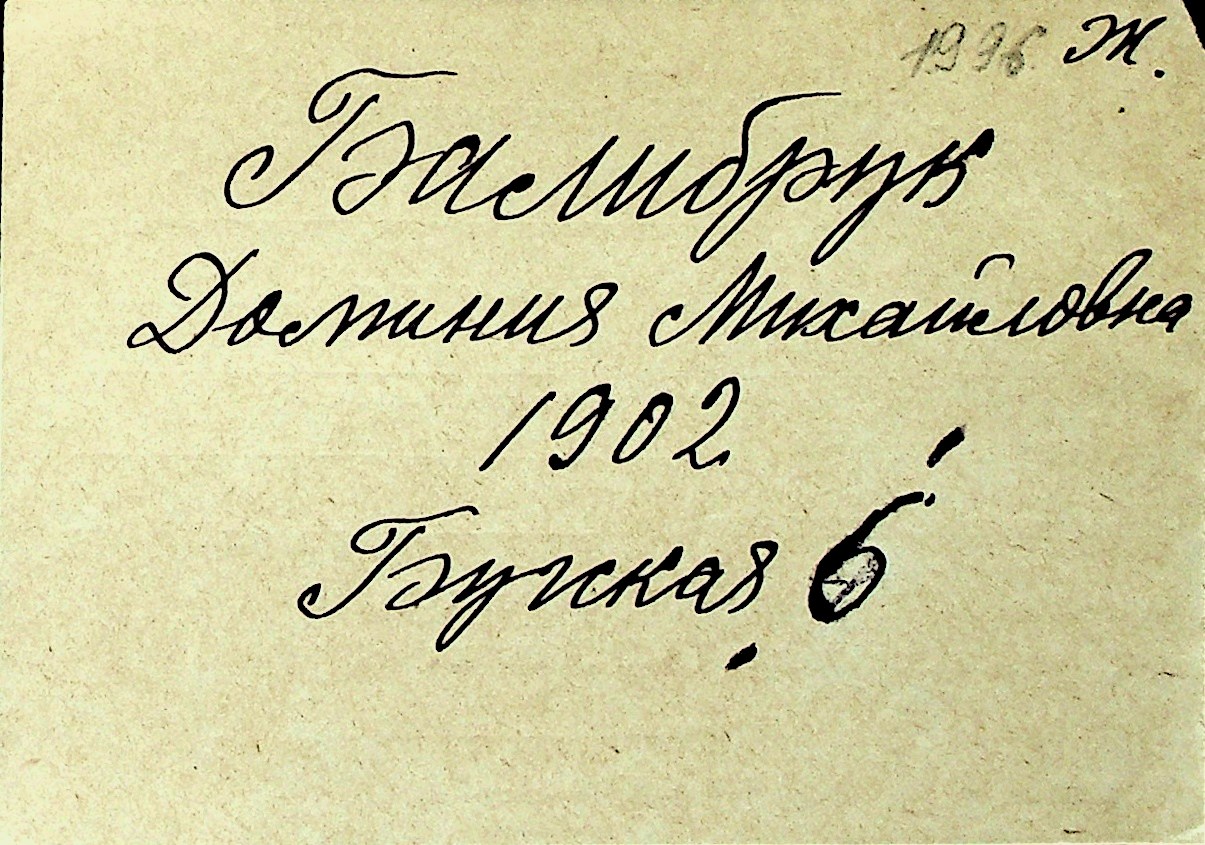 1996 Ж.
Балибрук
Доминия Михайловна
1902
Бугская 6